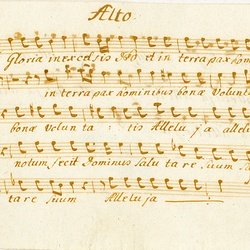 Alto
Gloria in excelsis Deo et in terra pax
in terra pax hominibus bonæ
bonæ volunta : tis Allelu ja
notum fecit Dominus salu ta re suum
ta re suum Alleluja